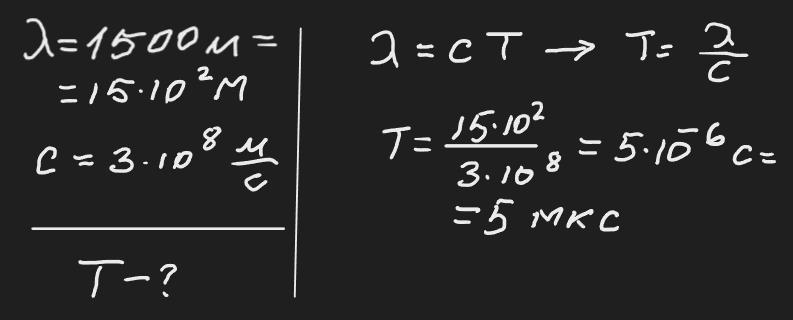 λ=1500м=
=15·10²м
c = 3·10⁸ м/с
T-?
λ = cT → T= λ/c
T= 15·10²/3·10⁸ = 5·10⁻⁶ с=
=5 мкс